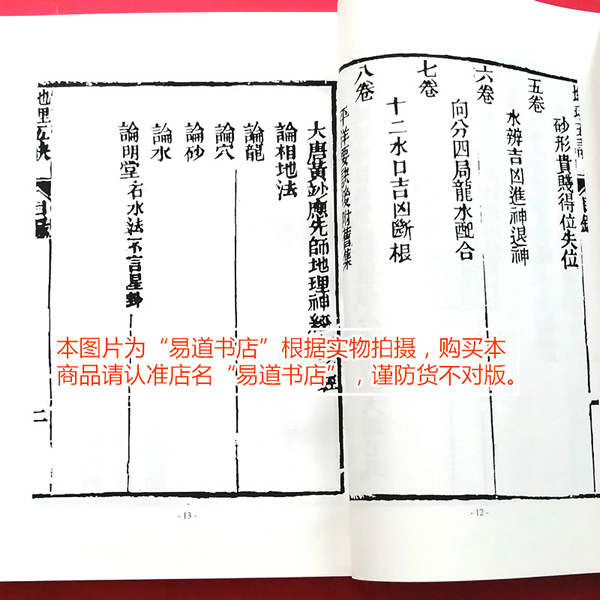 砂形貴賤得位失位
五卷
水辨吉凶進神退神
六卷
向分四局龍水配合
七卷
十二水口吉凶斷根
八卷
平洋要
目錄
- 12 -
大唐黃妙應先師地理神
論相地法
論龍
論穴
論砂
論水
論明堂 名水法不言星卦
地理五訣
目錄
二
- 13 -
本图片为“易道书店”根据实物拍摄，购买本
商品请认准店名“易道书店”，谨防货不对版。